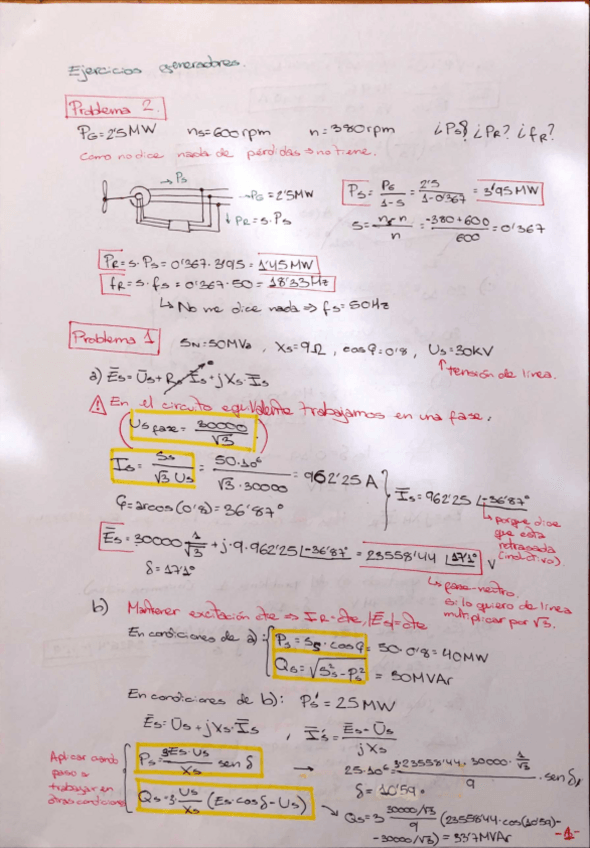 Ejercicios generadores.
Problema 2.
PG=2'5MW ns=600rpm n=380rpm ¿Ps? ¿PR? ¿fR?
Como no dice nada de pérdidas ⇒ no tiene.
→ Ps
→PG=2'5MW
↓ PR=s·Ps
Ps = PG/(1-s) = 2'5/(1-0'367) = 3'95MW
s = (ns-n)/n = (-380+600)/600 = 0'367
PR=s·Ps=0'367·3'95=1'45MW
fR=s·fs=0'367·50=18'33Hz
↳ No me dice nada ⇒ fs=50Hz
Problema 1
SN=50MVA, Xs=9Ω, cosφ=0'8, Us=30kV
↑ tensión de línea.
a) Ēs=Ūs+Rs·Īs+jXs·Īs
⚠ En el circuito equivalente trabajamos en una fase.
Us fase = 30000/√3
Is = Ss/(√3 Us) = 50·10⁶/(√3·30000) = 962'25 A
Īs=962'25 ∟-36'87°
φ=arcos(0'8)=36'87°
↳ porque dice que esta retrasada (inductivo).
Ēs=30000 1/√3 + j·9·962'25∟-36'87° = 23558'44 ∟17'1° V
δ=17'1°
↳ fase-neutro. si lo quiero de línea multiplicar por √3.
b) Mantener excitación cte ⇒ IR=cte, |Ēs|=cte
En condiciones de a): Ps=Ss·cosφ=50·0'8=40MW
Qs=√(Ss²-Ps²) = 30MVAr
En condiciones de b): Ps'=25MW
Ēs=Ūs+jXs·Īs, Īs'=(Ēs-Ūs)/jXs
Aplicar cuando paso a trabajar en otras condiciones
Ps=3Es·Us/Xs sen δ → 25·10⁶=3·23558'44·30000·1/√3 / 9 ·sen δ,
δ=10'59°
Qs=3·Us/Xs (Es·cosδ-Us)
↳ Qs=3 30000/√3 / 9 (23558'44·cos(10'59)-
-30000/√3)=33'7MVAr
-1-